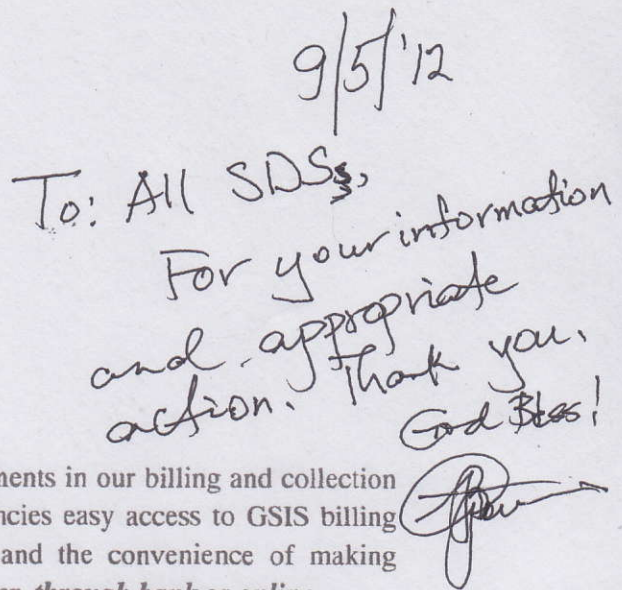 9/5/'12
To: All SDSs,
For your information
and appropriate
action. Thank you.
God Bless!
ments in our billing and collection
ncies easy access to GSIS billing
and the convenience of making
through bank or online